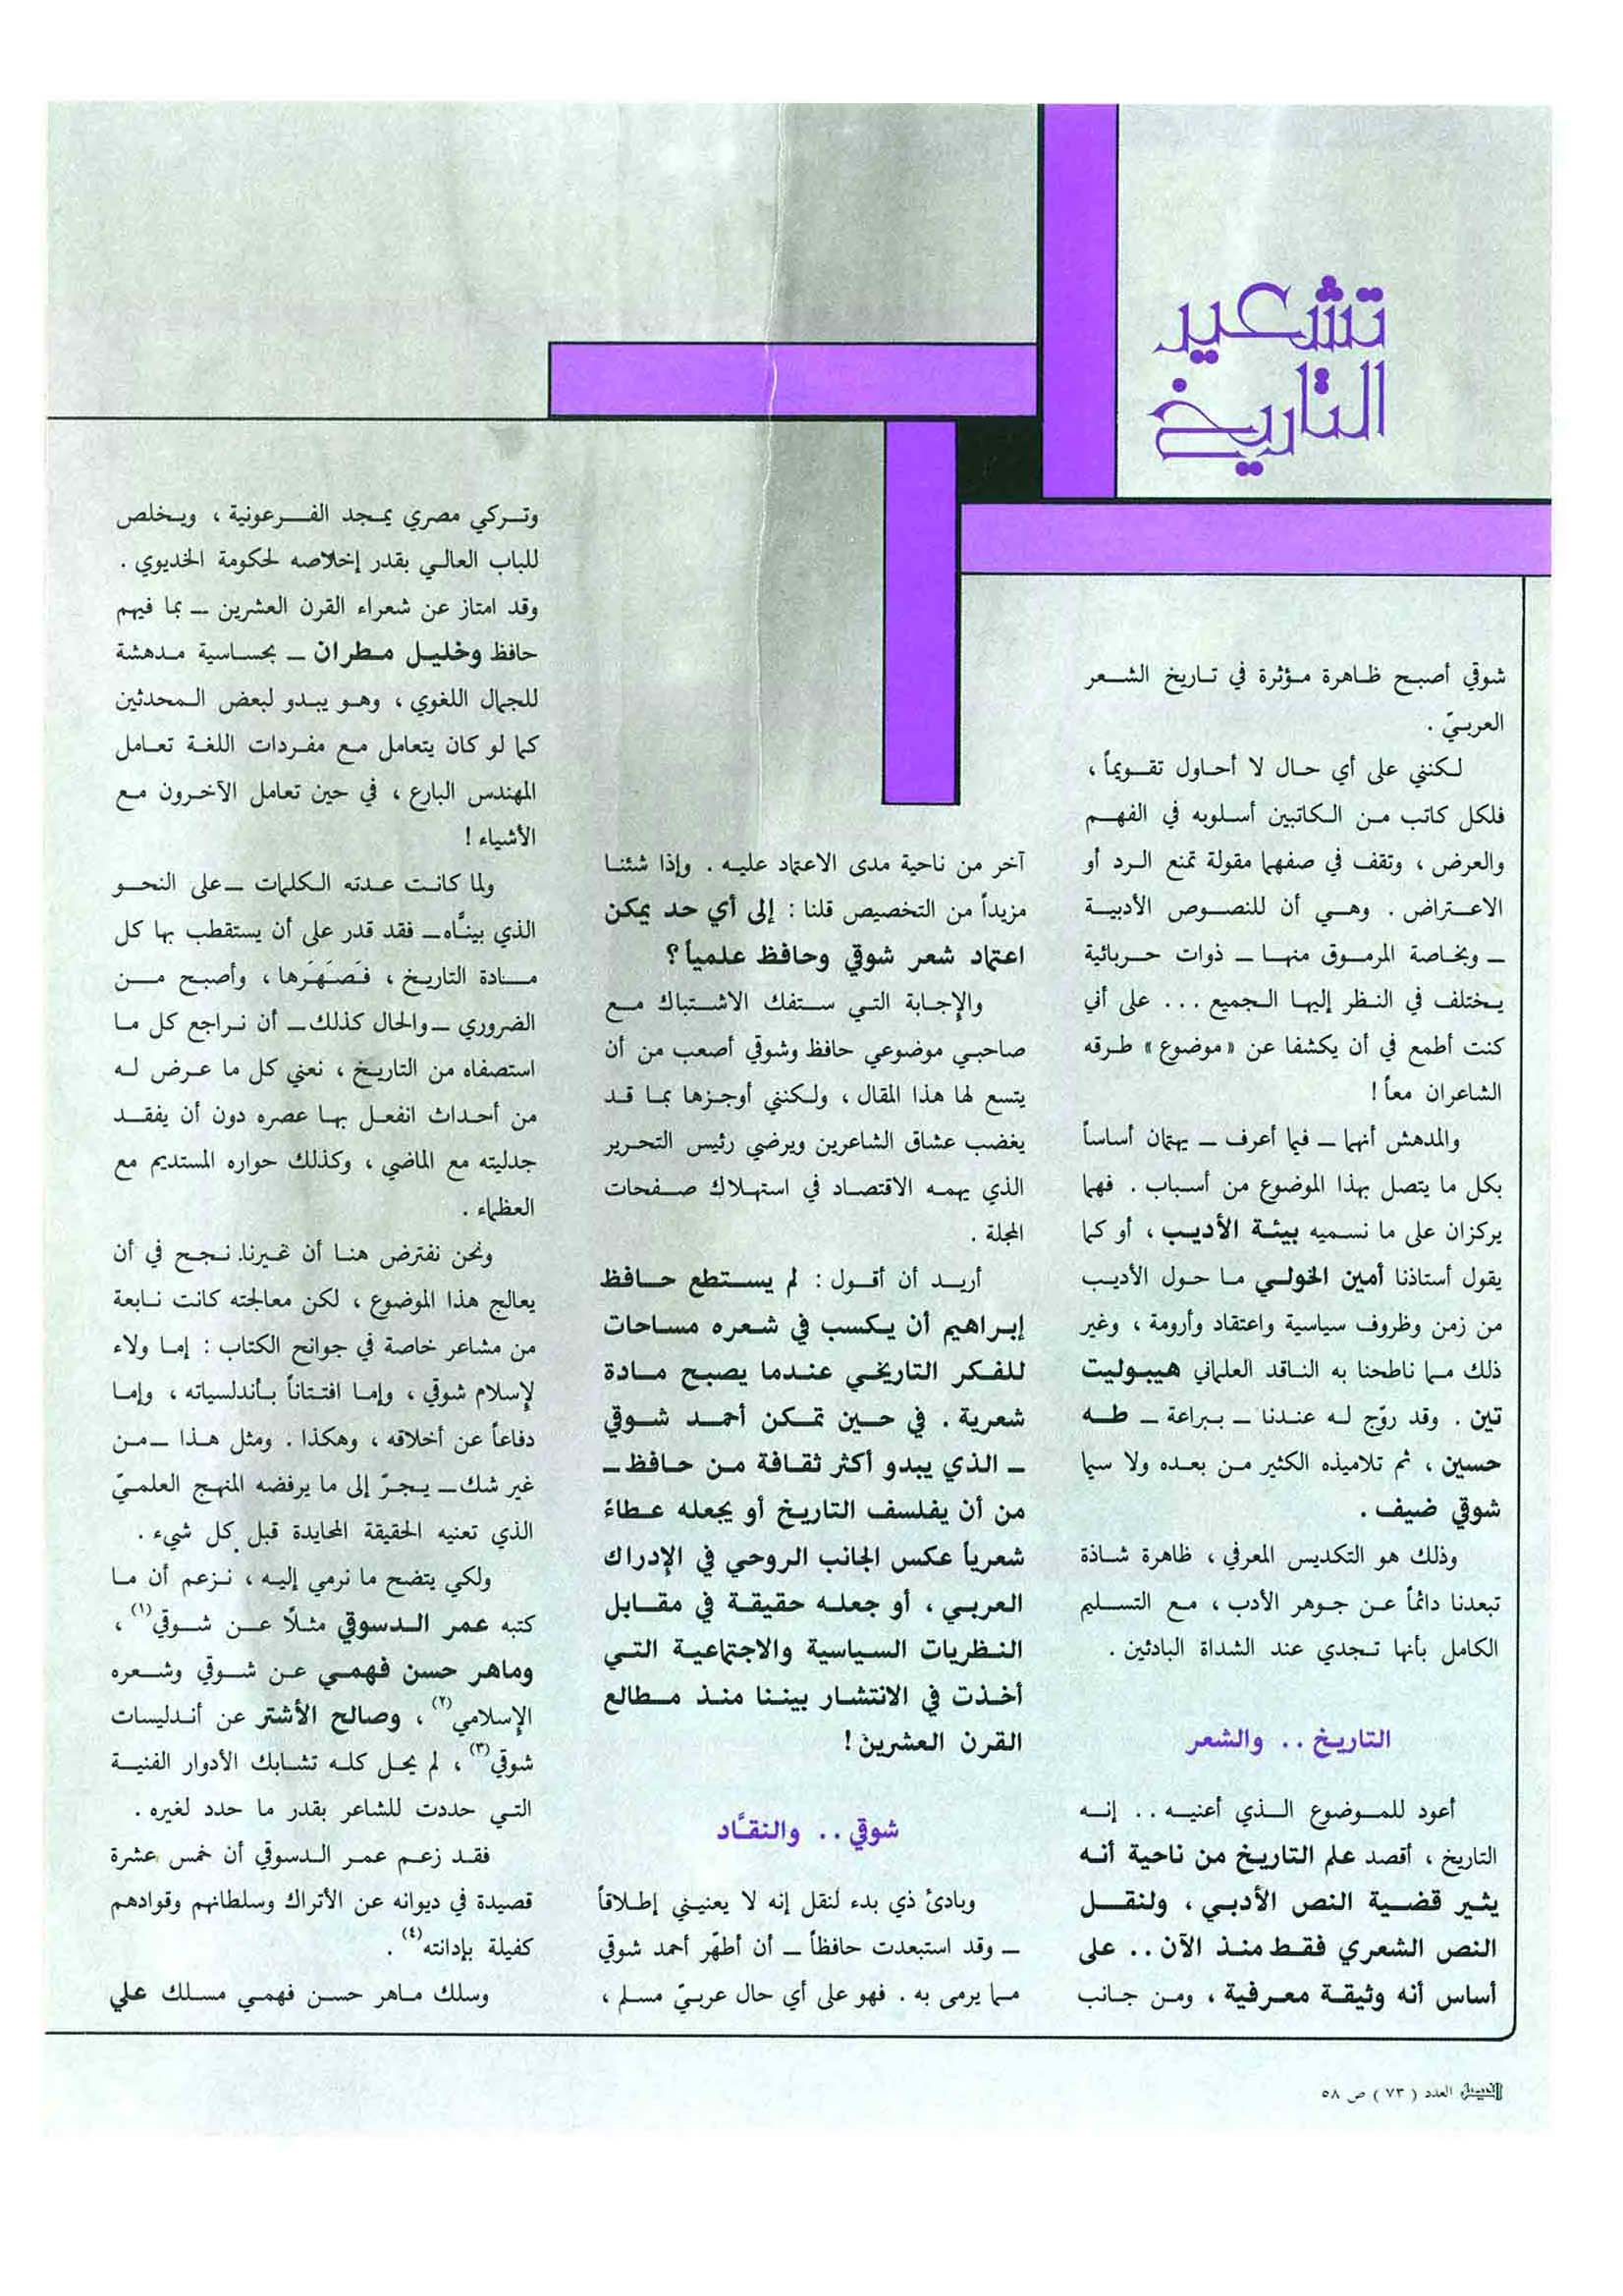 تشعير
التاريخ
شوقي أصبح ظاهرة مؤثرة في تاريخ الشعر
العربيّ .
لكنني على أي حال لا أحاول تقويماً ،
فلكل كاتب من الكاتبين أسلوبه في الفهم
والعرض ، وتقف في صفهما مقولة تمنع الرد أو
الاعتراض . وهي أن للنصوص الأدبية
ـ وبخاصة المرموق منها ـ ذوات حربائية
يختلف في النظر إليها الجميع ... على أني
كنت أطمع في أن يكشفا عن «موضوع» طرقه
الشاعران معاً !
والمدهش أنهما ـ فيما أعرف ـ يهتمان أساساً
بكل ما يتصل بهذا الموضوع من أسباب . فهما
يركزان على ما نسميه بيئة الأديب ، أو كما
يقول أستاذنا أمين الخولي ما حول الأديب
من زمن وظروف سياسية واعتقاد وأرومة ، وغير
ذلك مما ناطحنا به الناقد العلماني هيبوليت
تين . وقد روّج له عندنا ـ ببراعة ـ طه
حسين ، ثم تلاميذه الكثير من بعده ولا سيما
شوقي ضيف .
وذلك هو التكديس المعرفي ، ظاهرة شاذة
تبعدنا دائماً عن جوهر الأدب ، مع التسليم
الكامل بأنها تجدي عند الشداة البادئين .
التاريخ .. والشعر
أعود للموضوع الذي أعنيه .. إنه
التاريخ ، أقصد علم التاريخ من ناحية أنه
يثير قضية النص الأدبي ، ولنقل
النص الشعري فقط منذ الآن .. على
أساس أنه وثيقة معرفية ، ومن جانب
آخر من ناحية مدى الاعتماد عليه . وإذا شئنا
مزيداً من التخصيص قلنا : إلى أي حد يمكن
اعتماد شعر شوقي وحافظ علمياً ؟
والإجابة التي ستفك الاشتباك مع
صاحبي موضوعي حافظ وشوقي أصعب من أن
يتسع لها هذا المقال ، ولكنني أوجزها بما قد
يغضب عشاق الشاعرين ويرضي رئيس التحرير
الذي يهمه الاقتصاد في استهلاك صفحات
المجلة .
أريد أن أقول : لم يستطع حافظ
إبراهيم أن يكسب في شعره مساحات
للفكر التاريخي عندما يصبح مادة
شعرية . في حين تمكن أحمد شوقي
ـ الذي يبدو أكثر ثقافة من حافظ ـ
من أن يفلسف التاريخ أو يجعله عطاءً
شعرياً عكس الجانب الروحي في الإدراك
العربي ، أو جعله حقيقة في مقابل
النظريات السياسية والاجتماعية التي
أخذت في الانتشار بيننا منذ مطالع
القرن العشرين !
شوقي .. والنقَّاد
وبادئ ذي بدء لنقل إنه لا يعنيني إطلاقاً
ـ وقد استبعدت حافظاً ـ أن أطهّر أحمد شوقي
مما يرمى به . فهو على أي حال عربيّ مسلم ،
وتركي مصري يمجد الفرعونية ، ويخلص
للباب العالي بقدر إخلاصه لحكومة الخديوي .
وقد امتاز عن شعراء القرن العشرين ـ بما فيهم
حافظ وخليل مطران ـ بحساسية مدهشة
للجمال اللغوي ، وهو يبدو لبعض المحدثين
كما لو كان يتعامل مع مفردات اللغة تعامل
المهندس البارع ، في حين تعامل الآخرون مع
الأشياء !
ولما كانت عدته الكلمات ـ على النحو
الذي بينَّاه ـ فقد قدر على أن يستقطب بها كل
مادة التاريخ ، فَصَهَرَها ، وأصبح من
الضروري ـ والحال كذلك ـ أن نراجع كل ما
استصفاه من التاريخ ، نعني كل ما عرض له
من أحداث انفعل بها عصره دون أن يفقد
جدليته مع الماضي ، وكذلك حواره المستديم مع
العظماء .
ونحن نفترض هنا أن غيرنا نجح في أن
يعالج هذا الموضوع ، لكن معالجته كانت نابعة
من مشاعر خاصة في جوانح الكتاب : إما ولاء
لإسلام شوقي ، وإما افتتاناً بأندلسياته ، وإما
دفاعاً عن أخلاقه ، وهكذا . ومثل هذا ـ من
غير شك ـ يجرّ إلى ما يرفضه المنهج العلميّ
الذي تعنيه الحقيقة المحايدة قبل كل شيء .
ولكي يتضح ما نرمي إليه ، نزعم أن ما
كتبه عمر الدسوقي مثلًا عن شوقي(١) ،
وماهر حسن فهمي عن شوقي وشعره
الإسلامي(٢) ، وصالح الأشتر عن أندليسات
شوقي(٣) ، لم يحل كله تشابك الأدوار الفنية
التي حددت للشاعر بقدر ما حدد لغيره .
فقد زعم عمر الدسوقي أن خمس عشرة
قصيدة في ديوانه عن الأتراك وسلطانهم وقوادهم
كفيلة بإدانته(٤) .
وسلك ماهر حسن فهمي مسلك علي
الفيصل العدد ( ٧٣ ) ص ٥٨